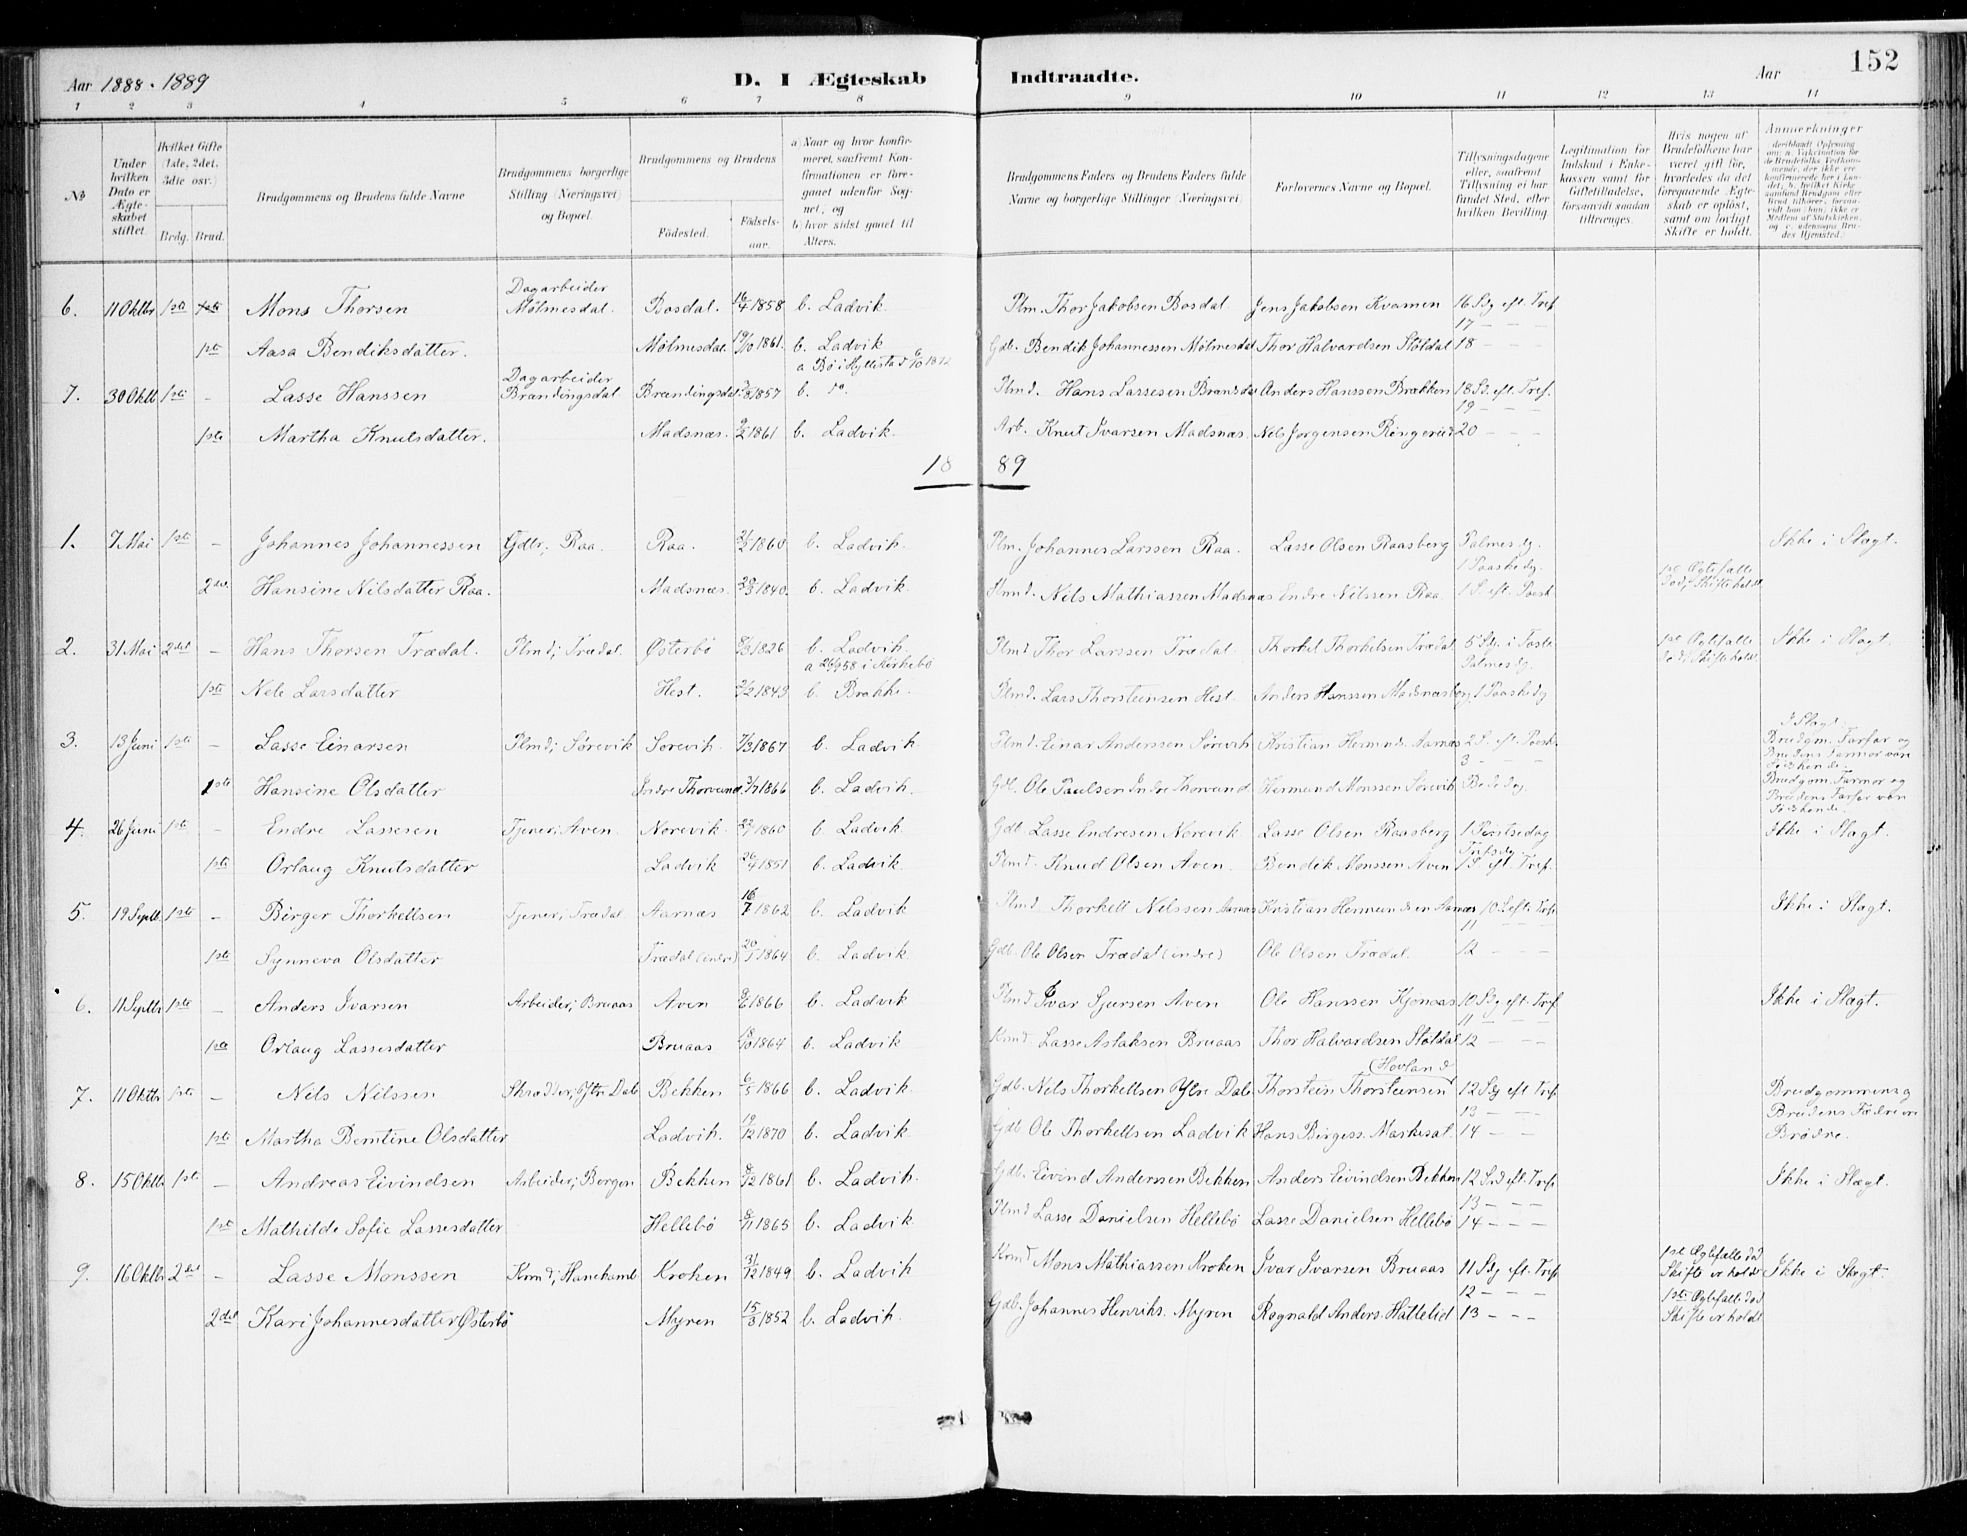 Aar 1888 - 1889 D. I Ægteskab Indtraadte. Aar 152
1 2 3 4 5 6 7 8 9 10 11 12 13 14
№
Under hvilken Dato er Ægteskabet stiftet.
Hvilket Gifte (1ste, 2det, 3die osv.)
Brdg. Brud.
Brudgommens og Brudens fulde Navne
Brudgommens borgerlige Stilling (Næringsvei) og Bopæl.
Brudgommens og Brudens
Födested. Födselsaar.
a) Naar og hvor konfirmeret, saafremt Konfirmationen er foregaaet udenfor Sognet, og
b) hvor sidst gaaet til Alters.
Brudgommens Faders og Brudens Faders fulde Navne og borgerlige Stillinger (Næringsvei).
Forlovernes Navne og Bopæl.
Tillysningsdagene eller, saafremt Tillysning ei har fundet Sted, efter hvilken Bevilling.
Legitimation for Indskud i Enkekassen samt for Giftetilladelse, forsaavidt saadan tiltrænges.
Hvis nogen af Brudefolkene har været gift før, hvorledes da det foregaaende Ægteskab er opløst, samt om lovligt Skifte er holdt.
Anmerkninger
6. 11 Oktbr 1ste 1ste Mons Thorsen Dagarbeider Mølmesdal. Bosdal. 16/4 1858 b. Ladvik. Plm. Thor Jakobsen Bosdal. Jens Jakobsen Kvamen 16 Sdg eft. Tref.
17 – – –
1ste Aasa Bendiksdatter. Mølmesdal. 19/10 1861. b. Ladvik Gdb. Bendik Johannessen Mølmesdal Thor Halvardsen Støldal 18 – – –
a Bø i Hyllestad 6/10 1872
7. 30 Oktb 1ste – Lasse Hanssen Dagarbeider Brændingsdal. Brændingsdal. 1857 b. do. Plmd. Hans Lassesen Brænsdal Anders Hanssen Brækken 18 Sd. eft. Tref.
19 – – –
1ste Martha Knutsdatter. Madsnæs. 1861 b. Ladvik. Arb. Knut Ivarsen Madsnæs. Nels Jørgensen Ringerud 20 – – –
18 89
1. 7 Mai 1ste – Johannes Johannessen Gdbr., Raa. Raa. 1860 b. Ladvik. Plm. Johannes Larssen Raa. Lasse Olsen Raasberg Palmesdg. Ikke i Slægt.
1 Paaskedg.
2det Hansine Nilsdatter Raa. Madsnæs. 1840. b. Ladvik. Plmd. Nils Mathiassen Madsnæs Endre Nilssen Raa. 1 S. eft. Paask. 1ste Ægtefælle død; Skifte holdt
2. 31 Mai 2det – Hans Thorsen Trædal. Plmd; Trædal. Østerbö 8/3 1826 b. Ladvik. Plmd Thor Larssen Trædal. Thorkel Thorkelsen Trædal 5 Sdg. i Faste 1ste Ægtefælle død, Skifte holdt. Ikke i Slægt.
a 26/9 58 i Kirkebö Palmesdg.
1ste Nele Larsdatter Hest. 1843 b. Brække. Plmd. Lars Thorsteinsen Hest. Anders Hanssen Madsnæsberg, 1 Paaskedg
3. 13 Juni 1ste – Lasse Einarsen Plmd; Sørevik Sørevik. 7/3 1867 b. Ladvik Plmd. Einar Anderssen Sørevik Kristian Hermunds. Aarnæs 2 S. eft. Paask. I Slægt. Brudgom. Farfar og Brudens Farmor vare Søskende.
3 – – –
1ste Hansine Olsdatter Indre Thorvund. 3/7 1866 b. Ladvik. Gdb. Ole Paulsen Indre Thorvund Hermund Monssen Sørevik Bededg. Brudgom. Farmor og Brudens Farfar vare Søskende.
4. 26 Juni 1ste – Endre Lassesen Tjener; Aven. Norevik. 1860 b. Ladvik. Gdb. Lasse Endresen Norevik. Lasse Olsen Raasberg 1 Pintsedag Ikke i Slægt.
Trefsdg.
1ste Orlaug Knutsdatter Ladvik 1851 b. Ladvik. Plmd. Knud Olsen Aven. Bendik Monssen Aven 1 S eft. Tref.
5. 19 Septb. 1ste – Birger Thorkellsen Tjener; Trædal. Aarnæs 16/7 1862 b. Ladvik Plmd. Thorkell Nilssen Aarnæs Kristian Hermundsen Aarnæs 10 S. eft. Tref. Ikke i Slægt.
11 – – –
1ste Synneva Olsdatter Trædal (indre) 20/1 1864 b. Ladvik. Gdb. Ole Olsen Trædal (indre) Ole Olsen Trædal. 12 – – –
6. 11 Septbr 1ste – Anders Ivarsen Arbeider; Bruaas Aven 9/6 1866 b. Ladvik Plmd. Ivar Sjursen Aven Ole Hanssen Kjønaas 10 Sdg eft. Tref. Ikke i Slægt.
11 – – –
1ste Orlaug Lassesdatter Bruaas 18/10 1864 b. Ladvik Kmd Lasse Aslaksen Bruaas Thor Halvardsen Støldal 12 – – –
(Hovland)
7. 11 Oktbr 1ste – Nils Nilssen Skrædder; Ytre Dale Bekken 6/5 1866 b. Ladvik. Gdb. Nils Thorkellsen Ytre Dale Thorstein Thorsteinsen 12 Sdg eft Tref. Brudgommens og Brudens Fædre vare Brødre.
13 – – –
1ste Martha Berntine Olsdatter Ladvik. 19/12 1870 b. Ladvik. Gdb Ole Thorkellsen Ladvik Hans Birgess. Markesat. 14 – –
8. 15 Oktb 1ste – Andreas Eivindsen Arbeider; Bergen Bekken 8/12 1861 b. Ladvik. Gdb. Eivind Anderssen Bekken Anders Eivindsen Bekken 12 Sd eft Tref. Ikke i Slægt.
13 – – –
1ste Mathilde Sofie Lassesdatter Hellebö 8/11 1865 b. Ladvik Plmd Lasse Danielsen Hellebö Lasse Danielsen Hellebö 14 – – –
9. 16 Oktbr 2det – Lasse Monssen Kmd; Hanekamb Kroken 31/12 1849 b. Ladvik Kmd. Mons Mathiassen Kroken Ivar Ivarsen Bruaas 11 Sdg eft. Tref. 1ste Ægtefælle død Skifte er holdt Ikke i Slægt.
12 – – –
2det Kari Johannesdatter Østerbö Myren 15/3 1852 b. Ladvik. Gdb. Johannes Henriks. Myren Rognald Anders. Hattelid 13 – – – 1ste Ægtefælle død Skifte er holdt